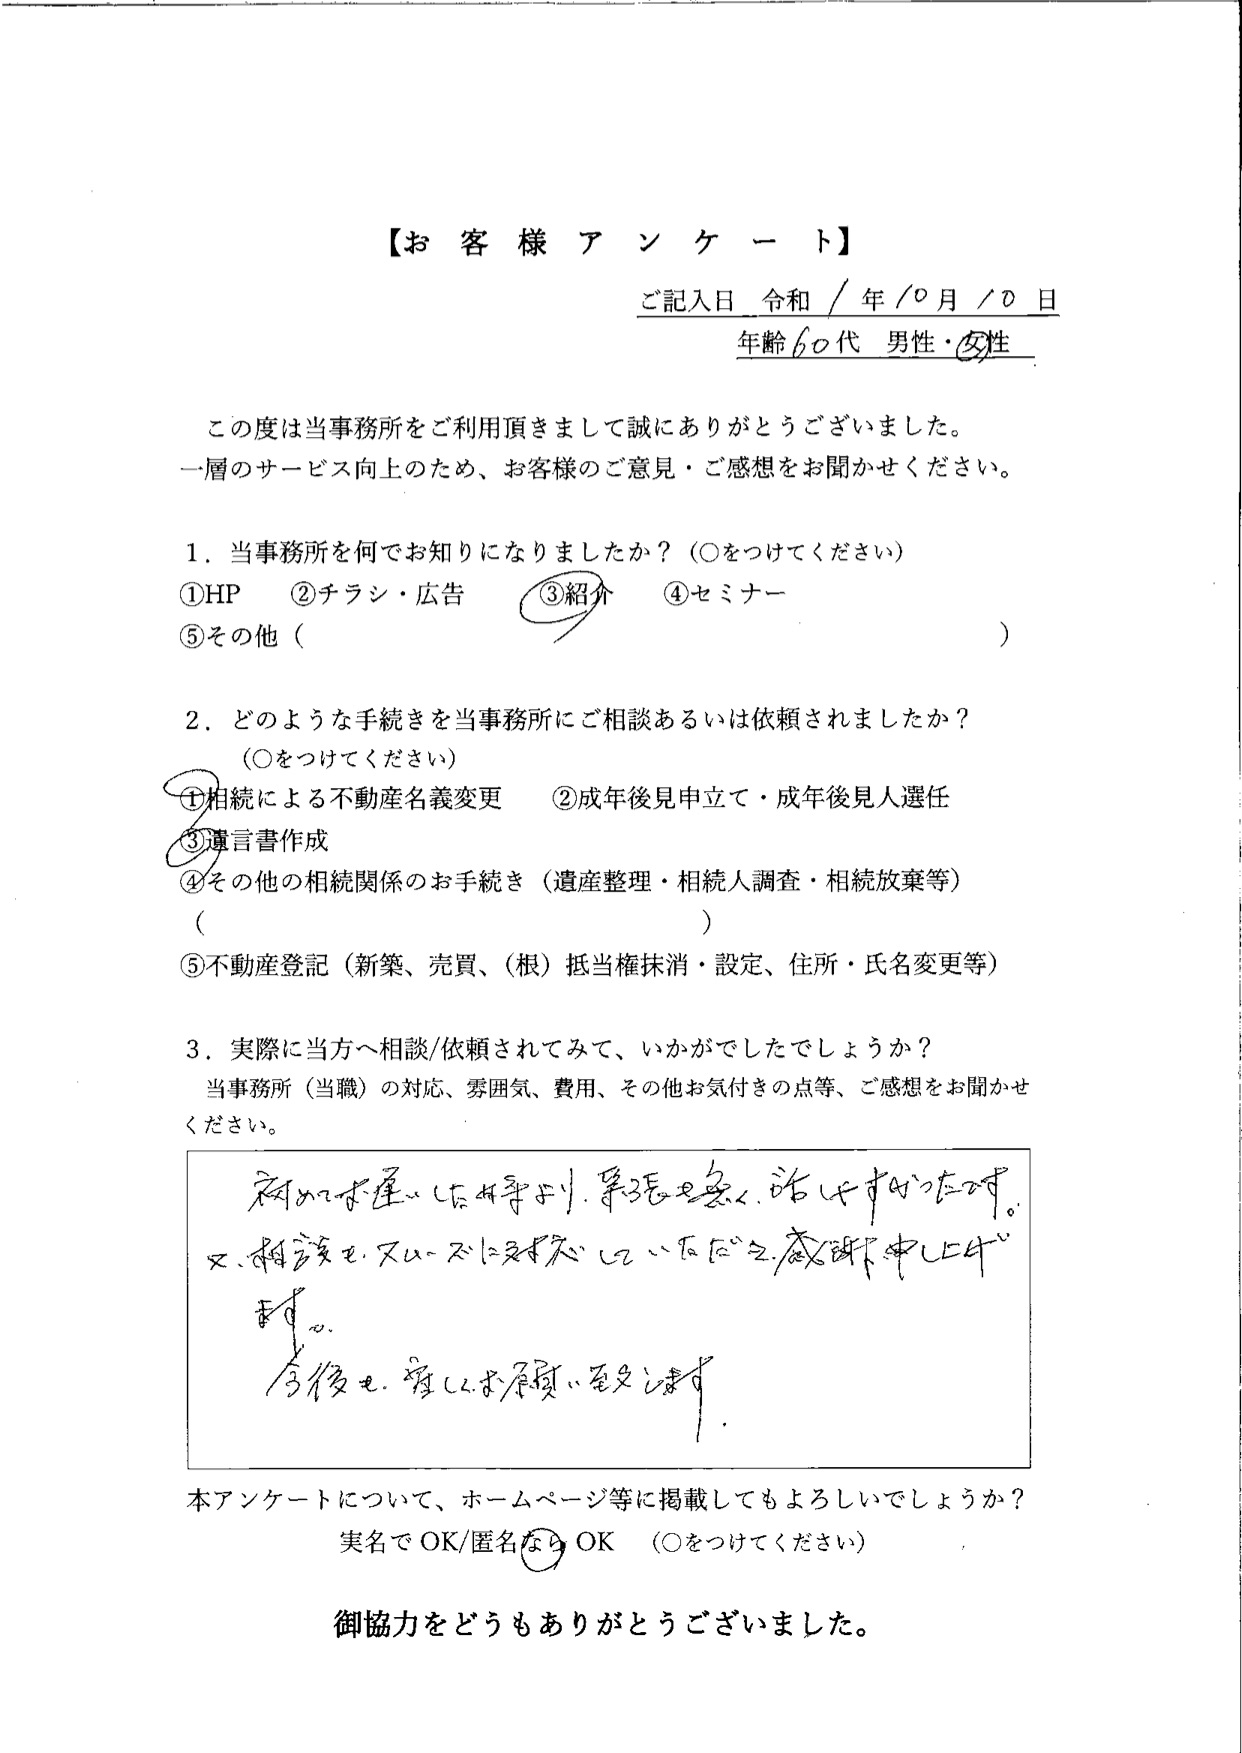 【お客様アンケート】
ご記入日 令和 1 年 10 月 10 日
年齢 60 代 男性・女性
この度は当事務所をご利用頂きまして誠にありがとうございました。
一層のサービス向上のため、お客様のご意見・ご感想をお聞かせください。
1．当事務所を何でお知りになりましたか？（○をつけてください）
①HP ②チラシ・広告 ③紹介 ④セミナー
⑤その他（ ）
2．どのような手続きを当事務所にご相談あるいは依頼されましたか？
（○をつけてください）
①相続による不動産名義変更 ②成年後見申立て・成年後見人選任
③遺言書作成
④その他の相続関係のお手続き（遺産整理・相続人調査・相続放棄等）
（ ）
⑤不動産登記（新築、売買、（根）抵当権抹消・設定、住所・氏名変更等）
3．実際に当方へ相談/依頼されてみて、いかがでしたでしょうか？
当事務所（当職）の対応、雰囲気、費用、その他お気付きの点等、ご感想をお聞かせ
ください。
初めてお逢いした時より、緊張も無く、話しやすかったです。
又、相談も、スムーズに対応していただき、感謝申し上げ
ます。
今後も、宜しくお願い致します。
本アンケートについて、ホームページ等に掲載してもよろしいでしょうか？
実名で OK/匿名なら OK （○をつけてください）
御協力をどうもありがとうございました。